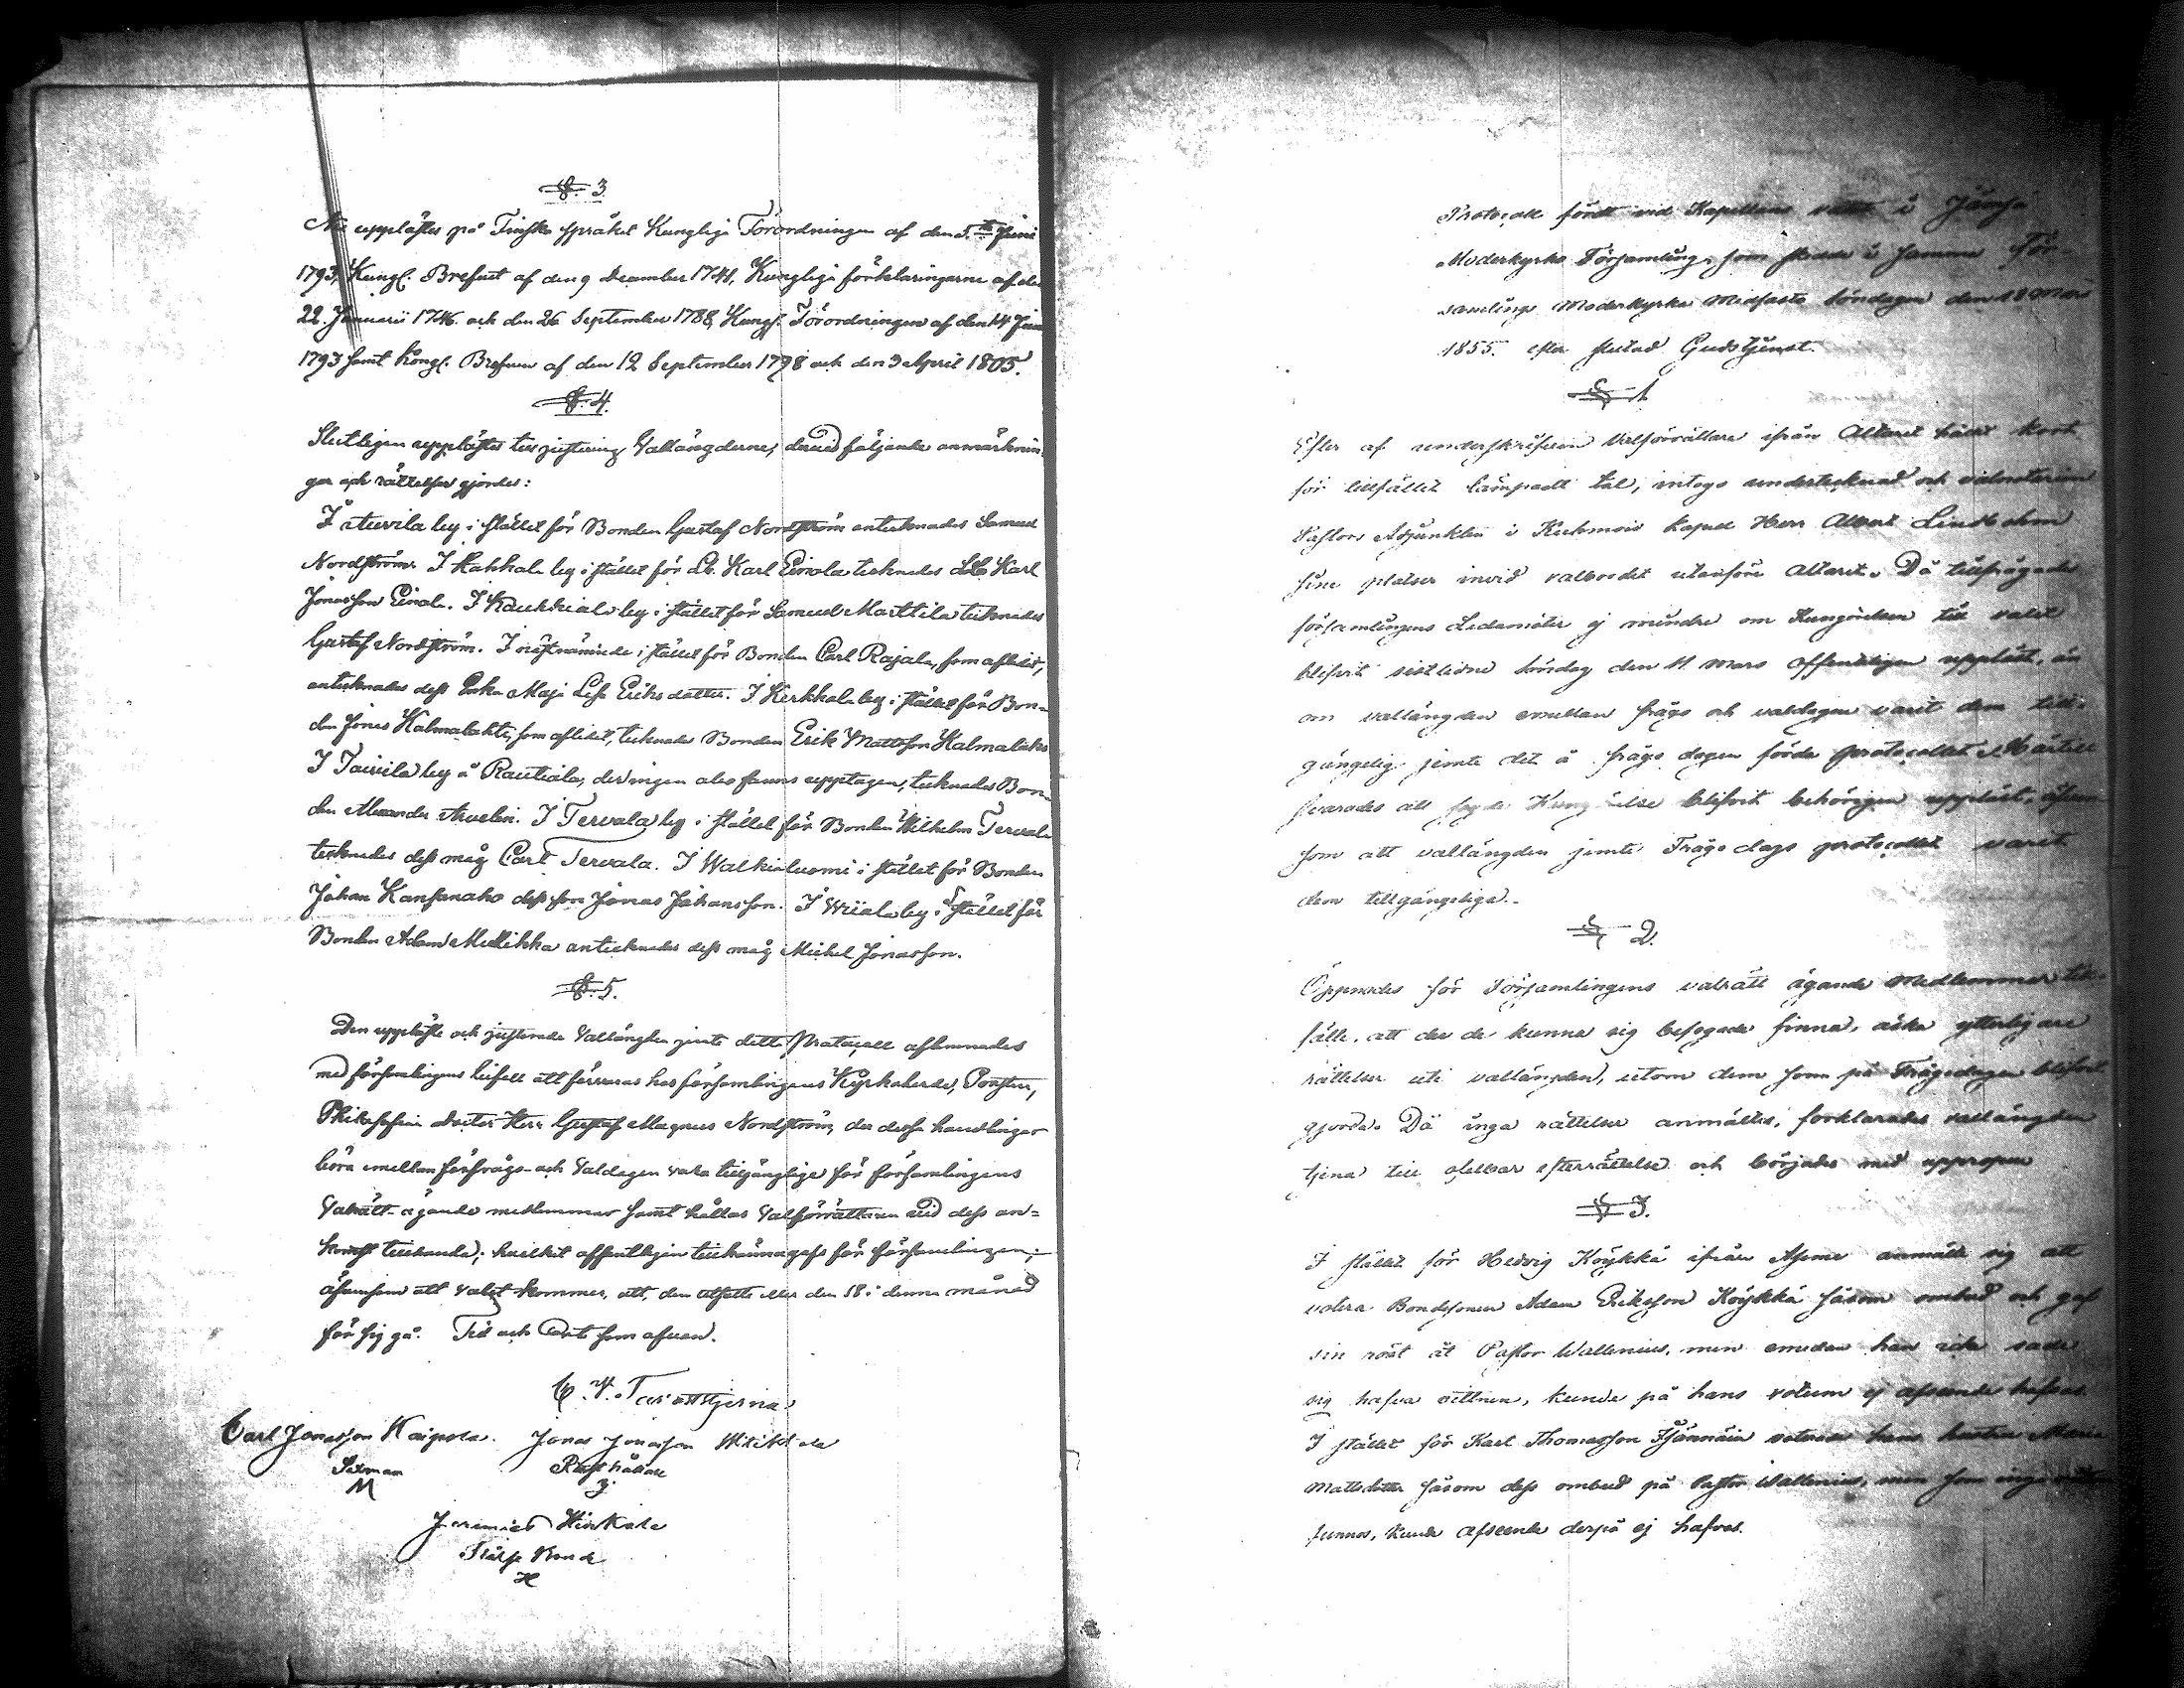 §. 3.
Nu upplästes på Finska språket Kungliga Förordningen af den 5.te Juni
1793, Kungl. Brefvet af den 9 December 1741, Kungliga förklaringarne af den
22. Januarii 1746. och den 26 September 1788, Kungl. Förordningen af den 14 Juni
1793 samt Kongl. Brefven af den 12 September 1798 och den 3 April 1805.
§. 4.
Slutligen upplästes till justering Vallängderne, dervid följande anmärknin-
gar och rättelser gjordes:
I by i stället för Bonden Gustaf Nordström antecknades Samuel
Nordström. I Kakkala by i stället för Karl Einola tecknades Karl
Jonasson Einola. I by i stället för Samuel Marttila tecknades
Gustaf Nordström. I sistnämnde i stället för Bonden Carl Rajala, som aflidit,
antecknades dess Enka Maja Lisa Eriksdotter. I Kerkkola by i stället för Bon-
den Jonas Kalmalahti, som aflidit, tecknades Bonden Erik Mattsson Kalmalahti
I by å Rautiala, der ingen alls fanns upptagen, tecknades Bon-
den Alexander Arvelin. I Tervala by i stället för Bonden Wilhelm Tervala
tecknades dess måg Carl Tervala. I Walkialuomi i stället för Bonden
Johan Kansanaho dess son Jonas Johansson. I by i stället för
Bonden Adam antecknades dess måg Michel Jonasson.
§. 5.
Den upplästa och justerade Vallängden jemte detta Protocoll aflemnades
med församlingens bifall att förvaras hos församlingens Kyrkoherde, Prosten,
Philosophiæ Doctor Herr Gustaf Magnus Nordström, der dessa handlingar
böra emellan förfrågs- och Valdagen vara tillgänglige för församlingens
Valrätt-ägande medlemmar samt hållas Valförrättaren vid dess an-
komst tillhanda; hvilket offentligen tillkännagafs för församlingen;
äfvensom att valet kommer, att, den aderton eller den 18 i denna månad
för sig gå. Tid och Ort som ofvan.
Carl Jonasson Kaipola. Jonas Jonasson
Sexman Rusthållare
M
Jeremias Hinkkala
Skatte Bonde
H
Protocoll fördt vid Kapellans valet i Jämsä
Moderkyrko Församling, som skedde i samma För-
samlings Moderkyrka Midfasto Söndagen den 18 Mars
1855. efter slutad Gudstjenst.
§ 1
Efter af underskrifven Valförrättare ifrån Altaret hållit kort
för tillfället lämpadt tal, intogo undertecknad och valnotarien
Pastors Adjunkten i Kuhmois kapell Herr Albert Lindholm
sine platser invid valbordet utanföre Altaret. Då tillfrågade
församlingens Ledamöter ej mindre om Kungörelsen till valet
blifvit sistledne Söndag den 11 Mars offentligen uppläst, än
om vallängden emellan frågo och valdagen varit dem till-
gängelig jemte det å frågo dagen förda protocollet. Härtill
svarades att sagde Kungörelse blifvit behörigen uppläst, äfven
som att vallängden jemte Frågo dags protocollet varit
dem tillgängeliga.
§ 2.
Öppnades för Församlingens valrätt ägande medlemmar till-
fälle, att der de kunna sig befogade finna, äska ytterligare
rättelser uti vallängden, utom dem som på Frågodagen blifvit
gjorda. Då inga rättelser anmältes, förklarades vallängden
tjena till ofelbar efterrättelse och börjades med uppropen
§ 3.
I stället för Hedvig Köykkä ifrån anmälte sig att
votera Bondsonen Adam Eriksson Köykkä såsom ombud och gaf
sin röst åt Pastor Wallenius, men emedan han icke sade
sig hafva vittnen, kunde på hans votum ej afseende hafvas.
I stället för Karl Thomasson voterade hans hustru Maria
Mattsdotter såsom dess ombud på Pastor Wallenius, men som inga
funnos, kunde afseende derpå ej hafvas.